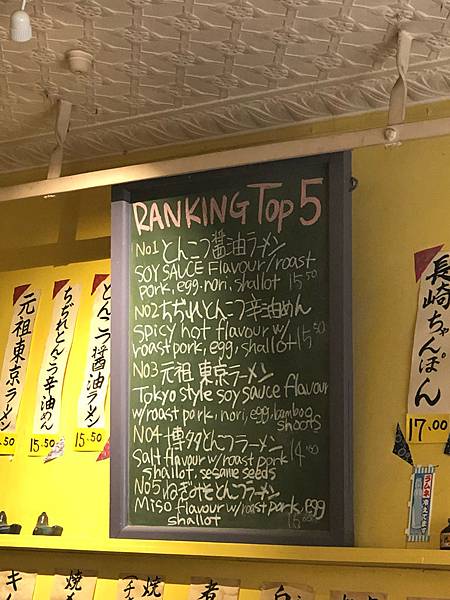 RANKING TOP 5
No1 とんこつ醤油ラーメン
SOY SAUCE FLAVOUR w/roast
pork, egg, nori, shallot 15.50
No2 ちぢれとんこつ辛油めん
Spicy hot flavour w/
roast pork, egg, shallot 15.50
No3 元祖 東京ラーメン
Tokyo style soy sauce flavour
w/roast pork, nori, egg, bamboo
shoots
No4 博多とんこつラーメン
Salt flavour w/roast pork 14.50
shallot, sesame seeds
No5 ねぎみそとんこつラーメン
Miso flavour w/roast pork, egg
shallot
元祖東京ラーメン
.50
ちぢれとんこつ辛油めん
15.50
とんこつ醤油ラーメン
15.50
長崎ちゃんぽん
17.00
ラムネ
冷えてます